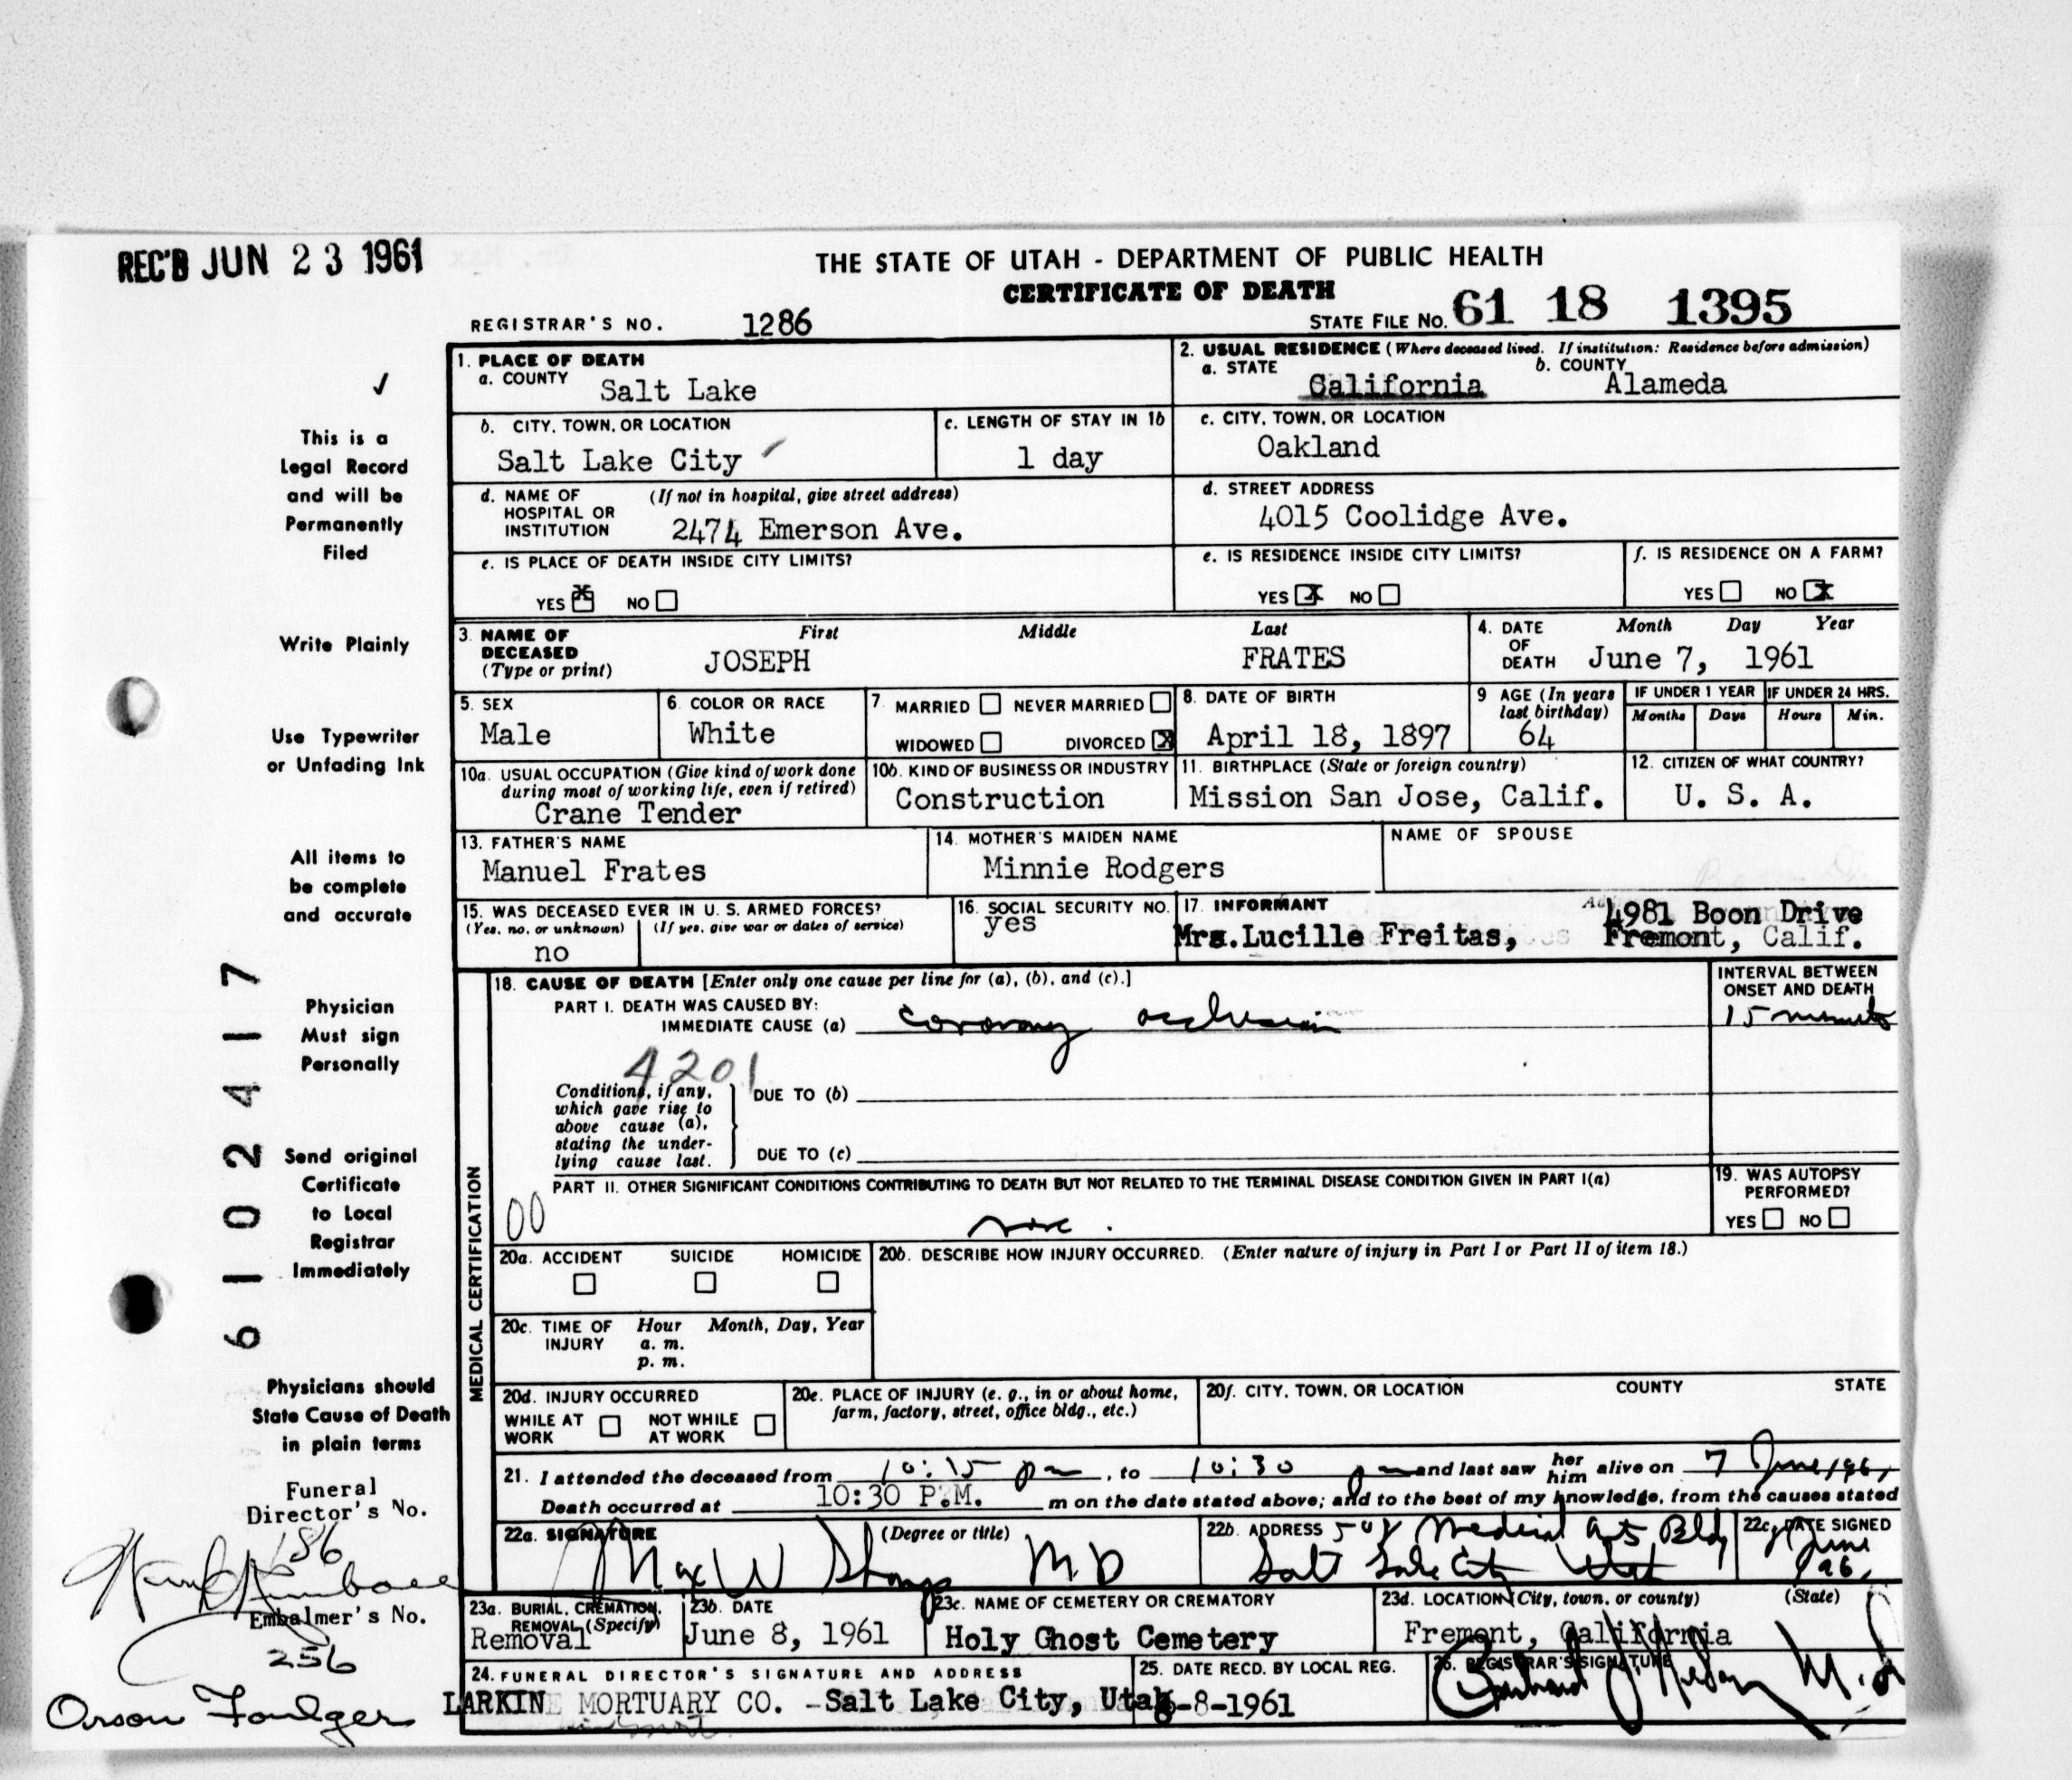 REC'D JUN 23 1961
THE STATE OF UTAH - DEPARTMENT OF PUBLIC HEALTH
CERTIFICATE OF DEATH
REGISTRAR'S NO. 1286
STATE FILE NO. 61 18 1395
✓
This is a
Legal Record
and will be
Permanently
Filed
Write Plainly
Use Typewriter
or Unfading Ink
All items to
be complete
and accurate
Physician
Must sign
Personally
Send original
Certificate
to Local
Registrar
Immediately
Physicians should
State Cause of Death
in plain terms
Funeral
Director's No.
186
Embalmer's No.
256
Orson Foulger
61024117
1. PLACE OF DEATH
a. COUNTY Salt Lake
2. USUAL RESIDENCE (Where deceased lived. If institution: Residence before admission)
a. STATE California b. COUNTY Alameda
b. CITY, TOWN, OR LOCATION
Salt Lake City
c. LENGTH OF STAY IN 1b
1 day
c. CITY, TOWN, OR LOCATION
Oakland
d. NAME OF HOSPITAL OR INSTITUTION (If not in hospital, give street address)
2474 Emerson Ave.
d. STREET ADDRESS
4015 Coolidge Ave.
e. IS PLACE OF DEATH INSIDE CITY LIMITS?
YES X NO
e. IS RESIDENCE INSIDE CITY LIMITS?
YES X NO
f. IS RESIDENCE ON A FARM?
YES NO X
3. NAME OF DECEASED (Type or print)
First Middle Last
JOSEPH FRATES
4. DATE OF DEATH Month Day Year
June 7, 1961
5. SEX
Male
6. COLOR OR RACE
White
7. MARRIED NEVER MARRIED
WIDOWED DIVORCED X
8. DATE OF BIRTH
April 18, 1897
9 AGE (In years last birthday)
64
IF UNDER 1 YEAR IF UNDER 24 HRS.
Months Days Hours Min.
10a. USUAL OCCUPATION (Give kind of work done during most of working life, even if retired)
Crane Tender
10b. KIND OF BUSINESS OR INDUSTRY
Construction
11. BIRTHPLACE (State or foreign country)
Mission San Jose, Calif.
12. CITIZEN OF WHAT COUNTRY?
U. S. A.
13. FATHER'S NAME
Manuel Frates
14. MOTHER'S MAIDEN NAME
Minnie Rodgers
NAME OF SPOUSE
15. WAS DECEASED EVER IN U. S. ARMED FORCES?
(Yes, no, or unknown) (If yes, give war or dates of service)
no
16. SOCIAL SECURITY NO.
yes
17. INFORMANT
4981 Boon Drive
Mrs. Lucille Freitas, Fremont, Calif.
MEDICAL CERTIFICATION
18. CAUSE OF DEATH [Enter only one cause per line for (a), (b), and (c).]
PART I. DEATH WAS CAUSED BY:
IMMEDIATE CAUSE (a) coronary occlusion
INTERVAL BETWEEN
ONSET AND DEATH
15 minutes
4201
Conditions, if any,
which gave rise to
above cause (a),
stating the under-
lying cause last.
DUE TO (b)
DUE TO (c)
PART II. OTHER SIGNIFICANT CONDITIONS CONTRIBUTING TO DEATH BUT NOT RELATED TO THE TERMINAL DISEASE CONDITION GIVEN IN PART I(a)
00 none.
19. WAS AUTOPSY
PERFORMED?
YES NO
20a. ACCIDENT SUICIDE HOMICIDE
20b. DESCRIBE HOW INJURY OCCURRED. (Enter nature of injury in Part I or Part II of item 18.)
20c. TIME OF INJURY Hour Month, Day, Year
a. m.
p. m.
20d. INJURY OCCURRED
WHILE AT WORK NOT WHILE AT WORK
20e. PLACE OF INJURY (e. g., in or about home, farm, factory, street, office bldg., etc.)
20f. CITY, TOWN, OR LOCATION COUNTY STATE
21. I attended the deceased from 10:15 pm, to 10:30 pm and last saw her him alive on 7 June, 1961
Death occurred at 10:30 P.M. m on the date stated above; and to the best of my knowledge, from the causes stated
22a. SIGNATURE (Degree or title)
Max W M D
22b. ADDRESS 508 Medical Arts Bldg
Salt Lake City Utah
22c. DATE SIGNED
June
23a. BURIAL, CREMATION, REMOVAL (Specify)
Removal
23b. DATE
June 8, 1961
23c. NAME OF CEMETERY OR CREMATORY
Holy Ghost Cemetery
23d. LOCATION (City, town, or county) (State)
Fremont, California
24. FUNERAL DIRECTOR'S SIGNATURE AND ADDRESS
LARKIN MORTUARY CO. - Salt Lake City, Utah
25. DATE RECD. BY LOCAL REG.
6-8-1961
26. REGISTRAR'S SIGNATURE
M.D